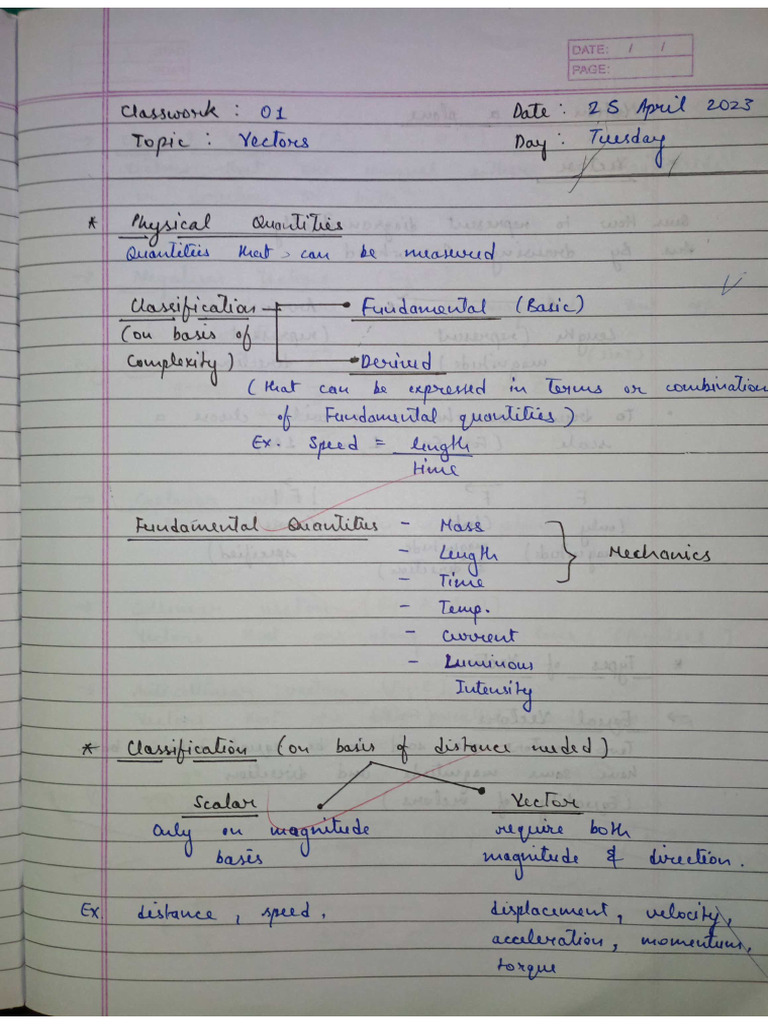 DATE: / /
PAGE:
Classwork : 01 Date : 25 April 2023
Topic : Vectors Day : Tuesday
* Physical Quantities
Quantities that can be measured
Classification Fundamental (Basic)
(on basis of
Complexity) Derived
(that can be expressed in terms or combination
of Fundamental quantities)
Ex. Speed = length
time
Fundamental Quantities - Mass
- Length Mechanics
- Time
- Temp.
- Current
- Luminous
Intensity
* Classification (on basis of distance needed)
Scalar Vector
Only on magnitude require both
basis magnitude & direction.
Ex. distance, speed, displacement, velocity,
acceleration, momentum,
torque